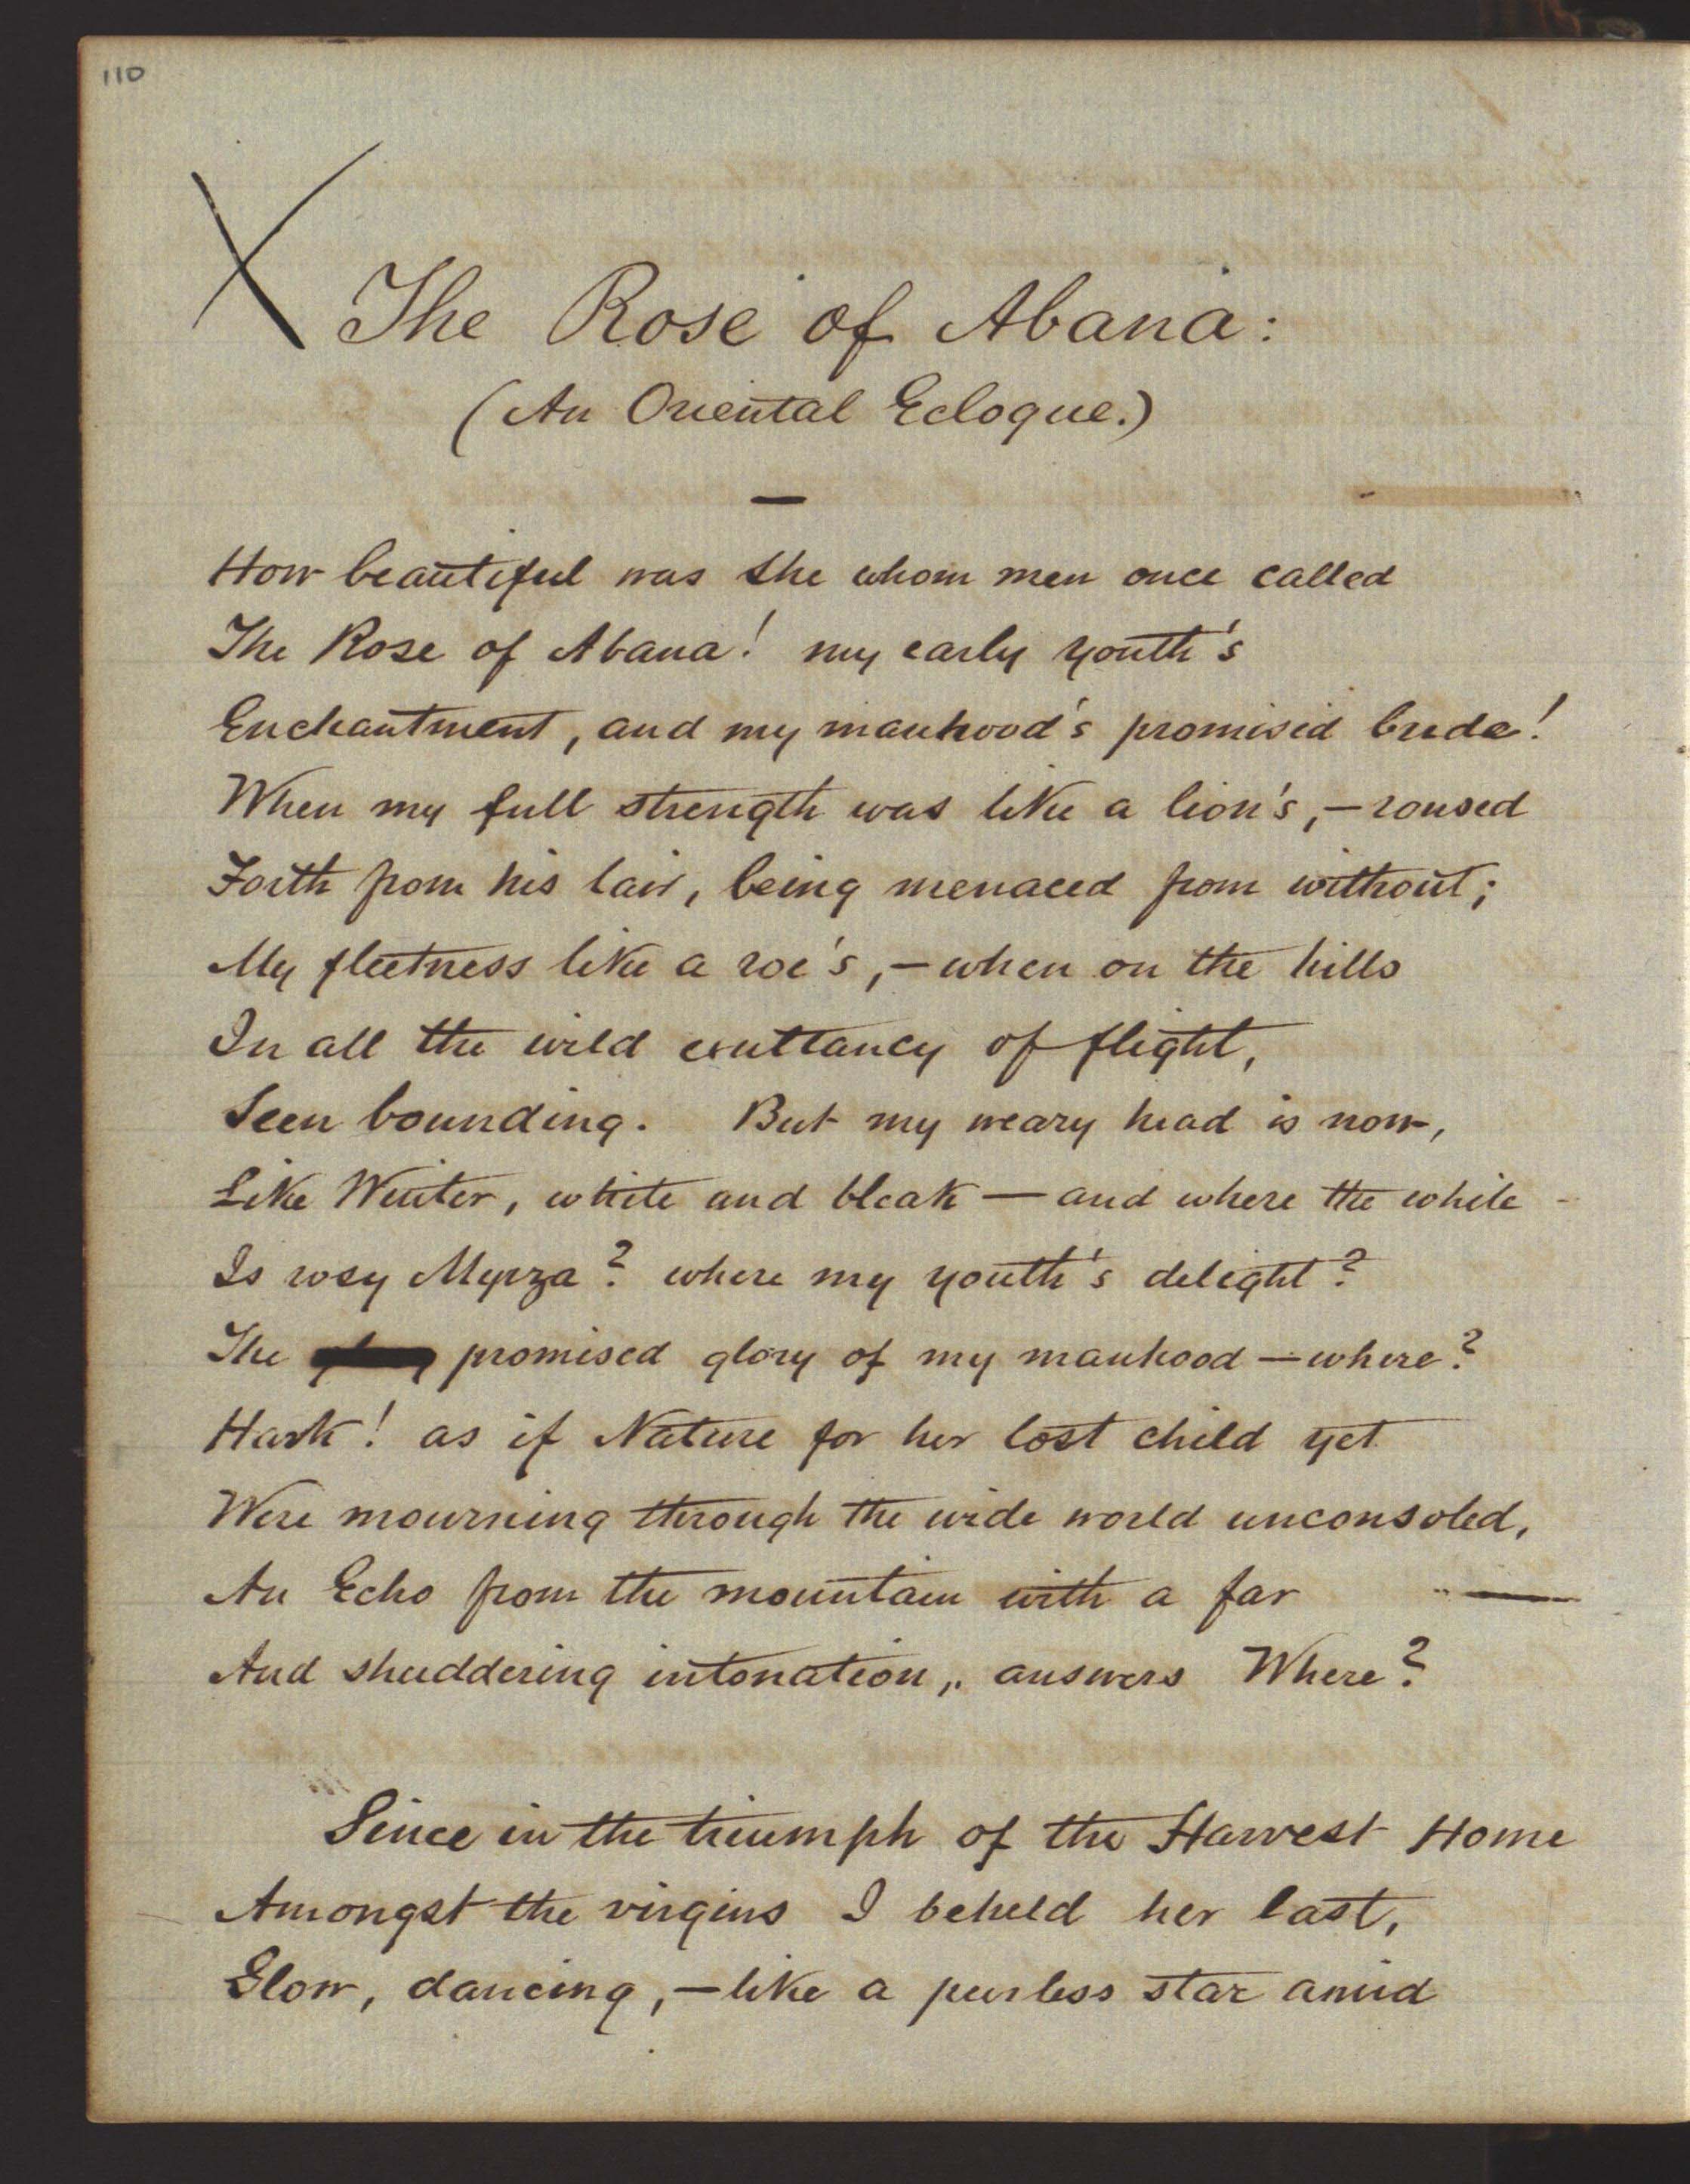 110
The Rose of Abana:
(An Oriental Eclogue.)
How beautiful was she whom men once called
The Rose of Abana! my early youth's
Enchantment, and my manhood's promised bride!
When my full strength was like a lion's, — roused
Forth from his lair, being menaced from without;
My fleetness like a roe's, — when on the hills
In all the wild exultancy of flight,
Seen bounding. But my weary head is now,
Like Winter, white and bleak — and where the while
Is rosy Myrza? where my youth's delight?
The promised glory of my manhood — where?
Hark! as if Nature for her lost child yet
Were mourning through the wide world unconsoled,
An Echo from the mountain with a far
And shuddering intonation, answers Where?
Since in the triumph of the Harvest Home
Amongst the virgins I beheld her last,
Slow, dancing, — like a peerless star amid